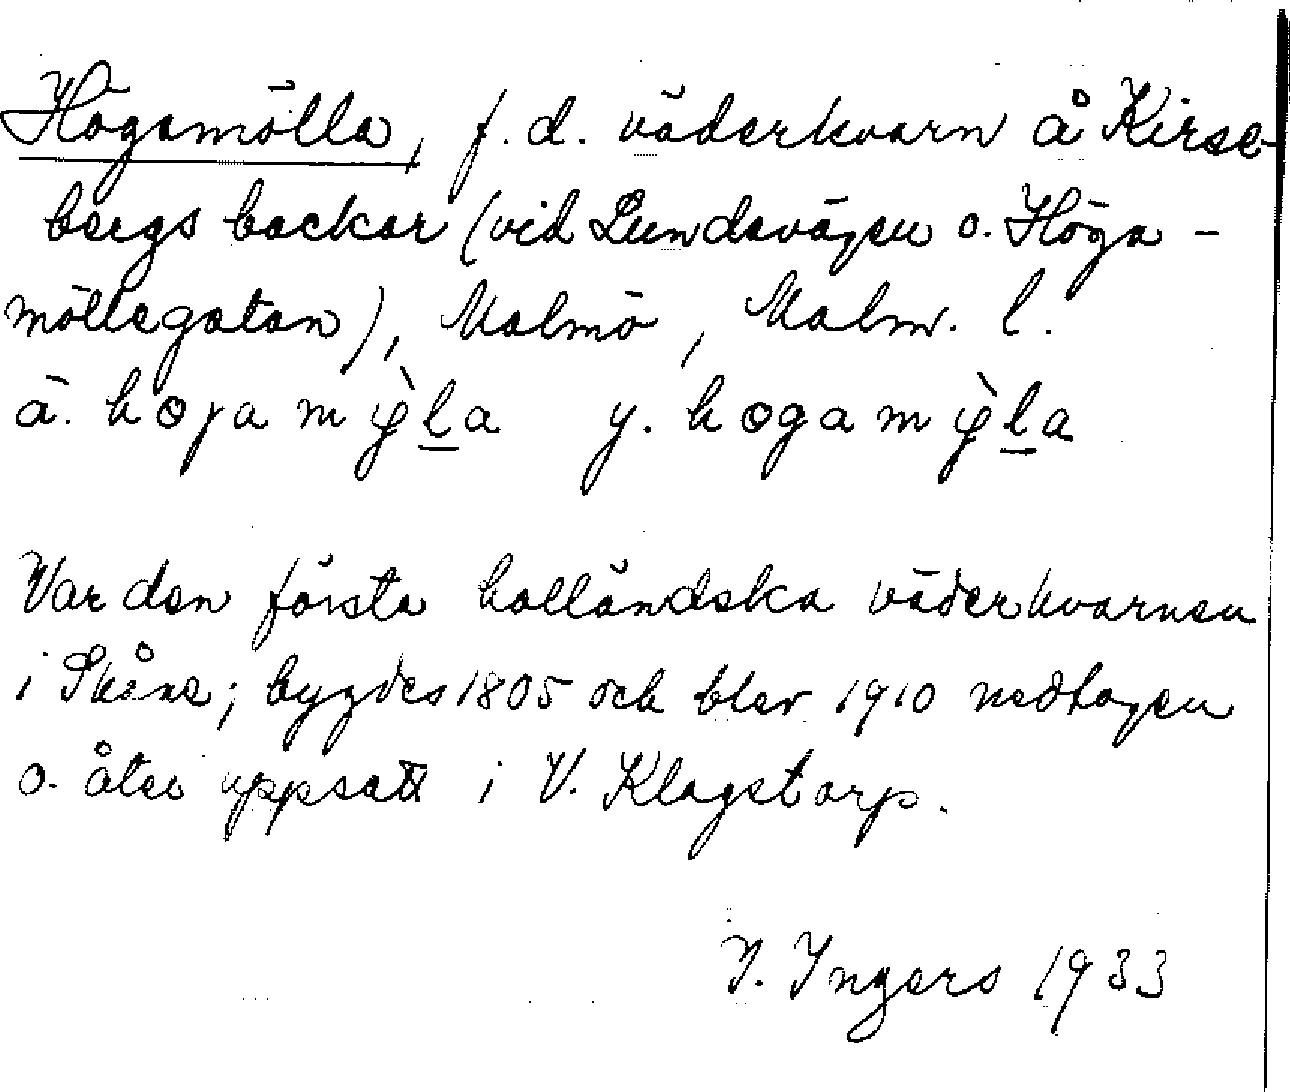 Högamölla, f. d. väderkvarn å Kirse-
bergs backar (vid Lundavägen o. Höga-
möllegatan), Malmö, Malm. l.
ä. højamø̀l̲a y. høgamø̀l̲a
Var den första holländska väderkvarnen
i Skåne; bygdes 1805 och blev 1910 nedtagen
o. åter uppsatt i V. Klagstorp.
I. Ingers 1933